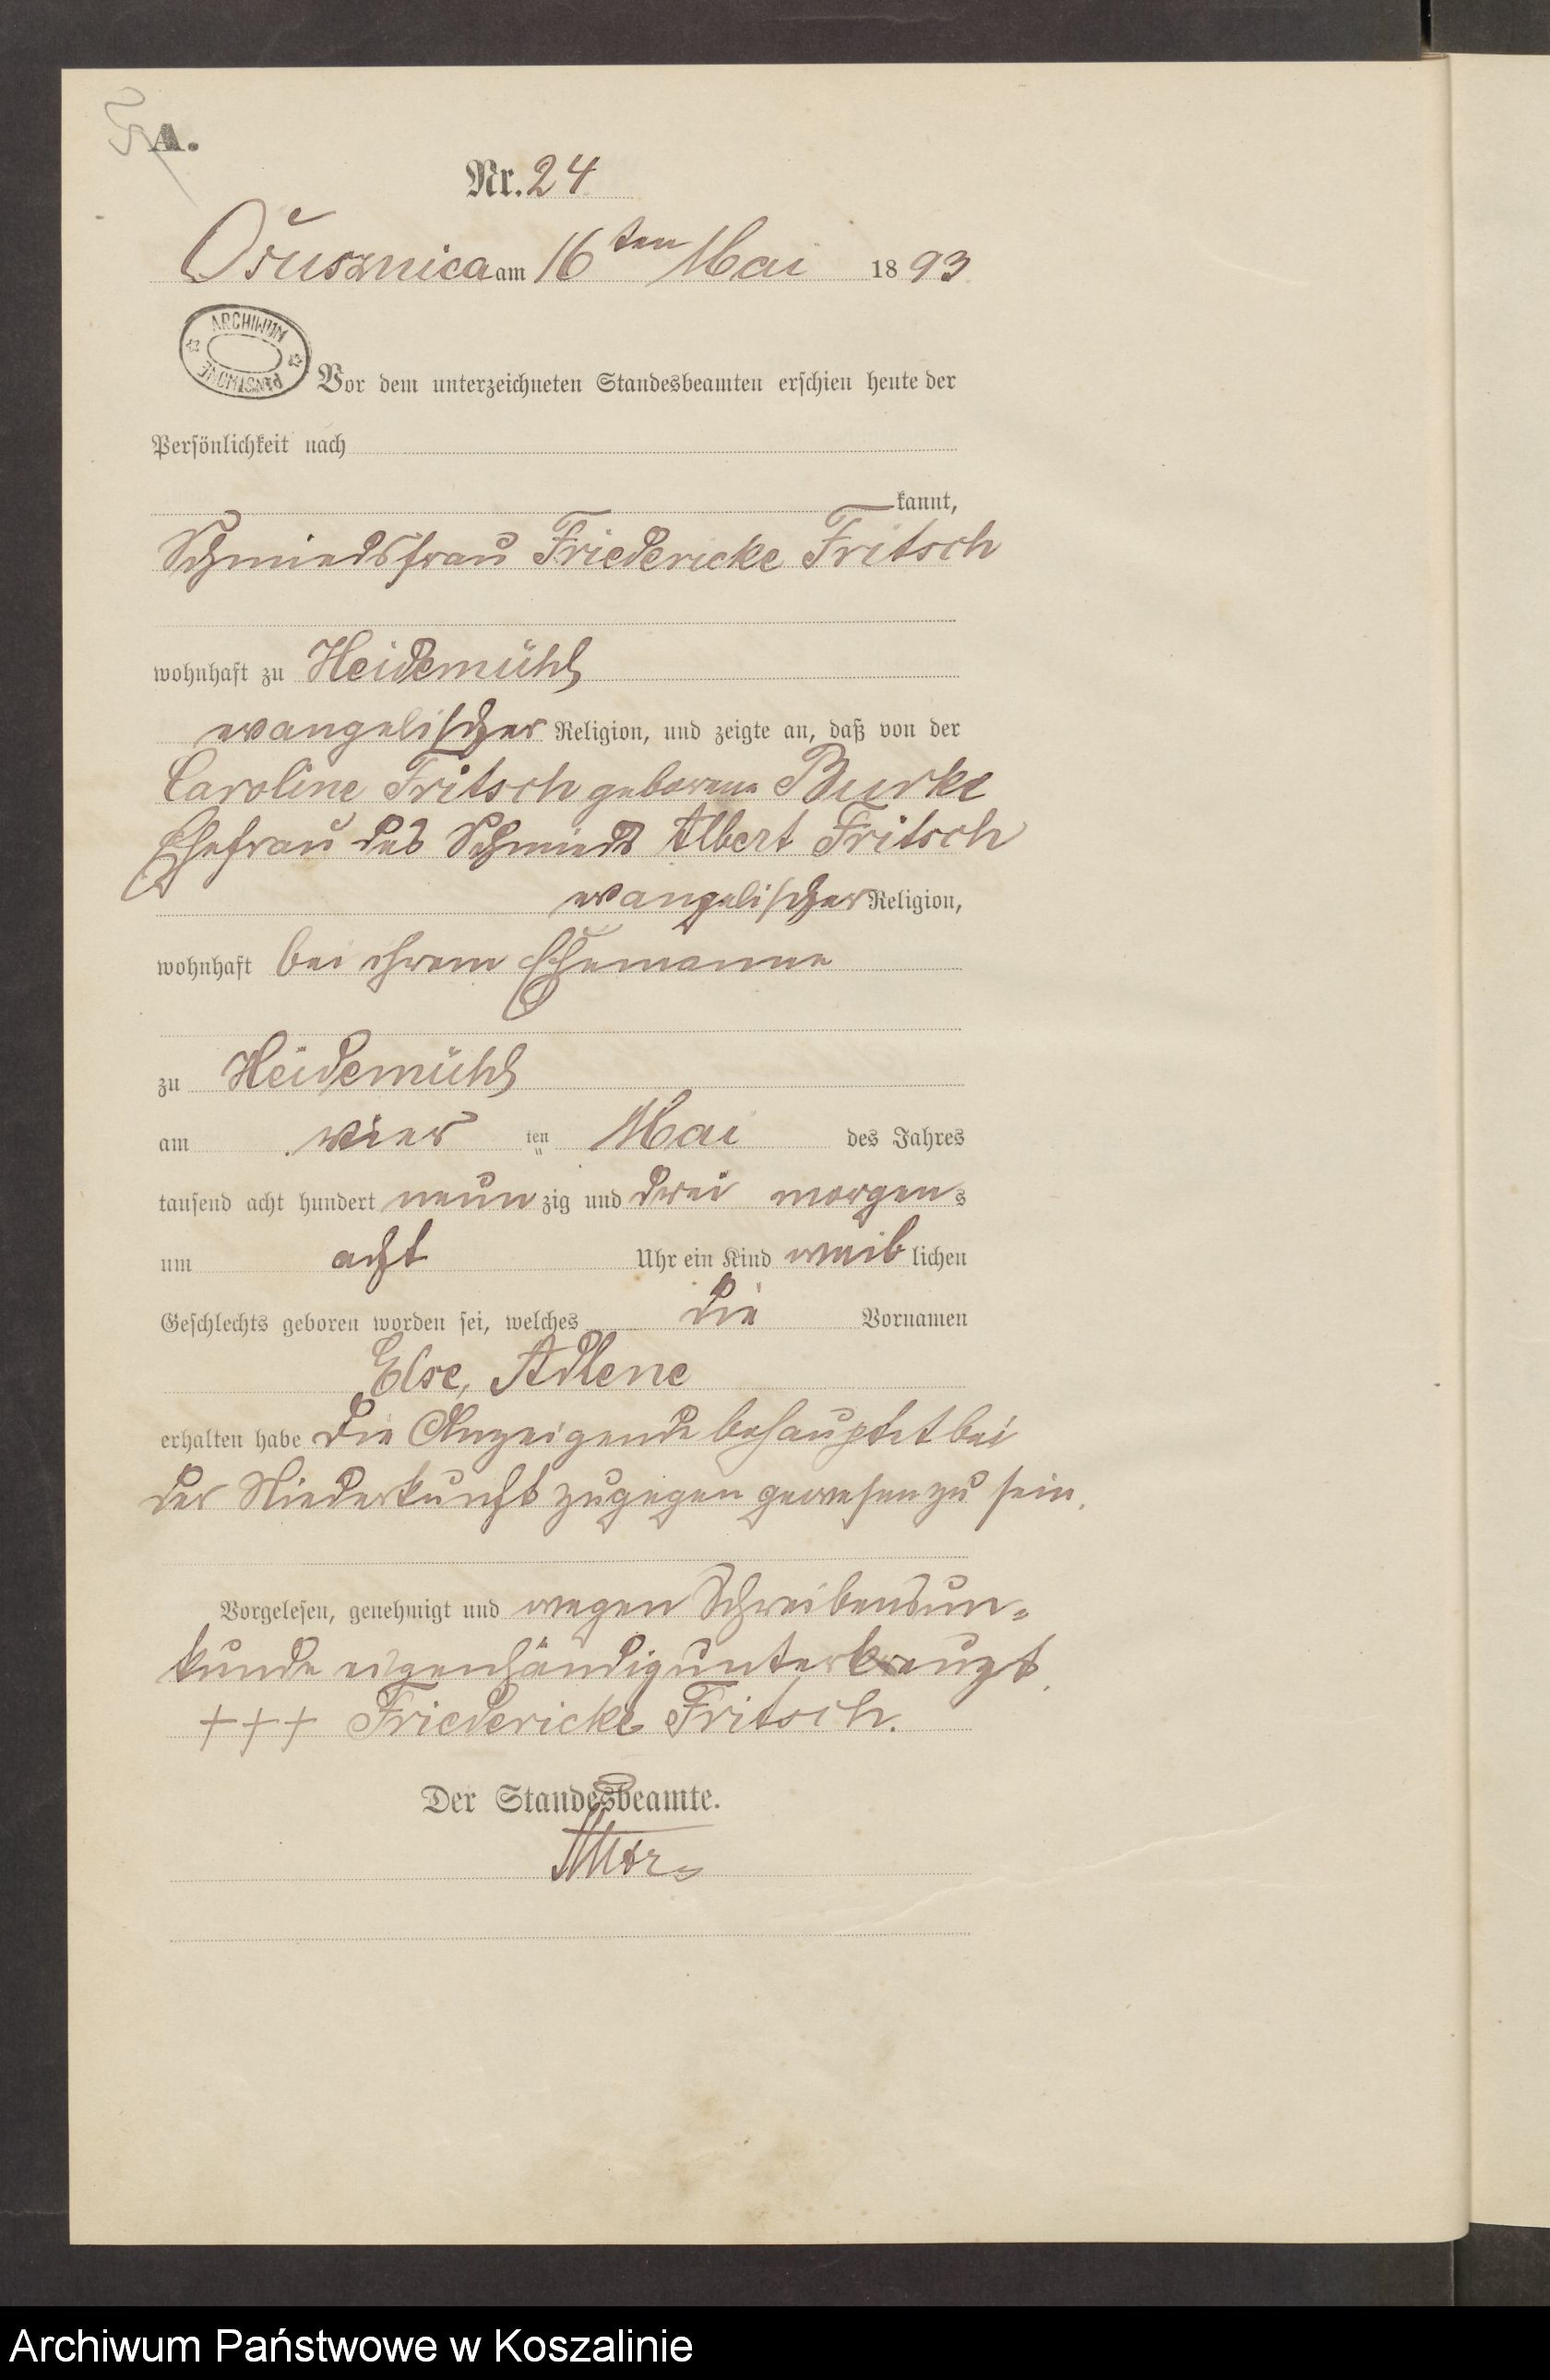 A.
Nr. 24
Osusznica am 16ten Mai 1893
ARCHIWUM PAŃSTWOWE
Vor dem unterzeichneten Standesbeamten erschien heute der
Persönlichkeit nach
kannt,
Schmiedsfrau Friedericke Fritsch
wohnhaft zu Heidemühl
evangelischer Religion, und zeigte an, daß von der
Caroline Fritsch geborene Burke
Ehefrau des Schmieds Albert Fritsch
evangelischer Religion,
wohnhaft bei ihrem Ehemanne
zu Heidemühl
am vier ten Mai des Jahres
tausend acht hundert neunzig und drei morgens
um acht Uhr ein Kind weiblichen
Geschlechts geboren worden sei, welches die Vornamen
Else, Adlene
erhalten habe Die Anzeigende behauptet bei
der Niederkunft zugegen gewesen zu sein.
Vorgelesen, genehmigt und wegen Schreibensun-
kunde eigenhändig unterkreuzt.
+++ Friedericke Fritsch.
Der Standesbeamte.
Archiwum Państwowe w Koszalinie